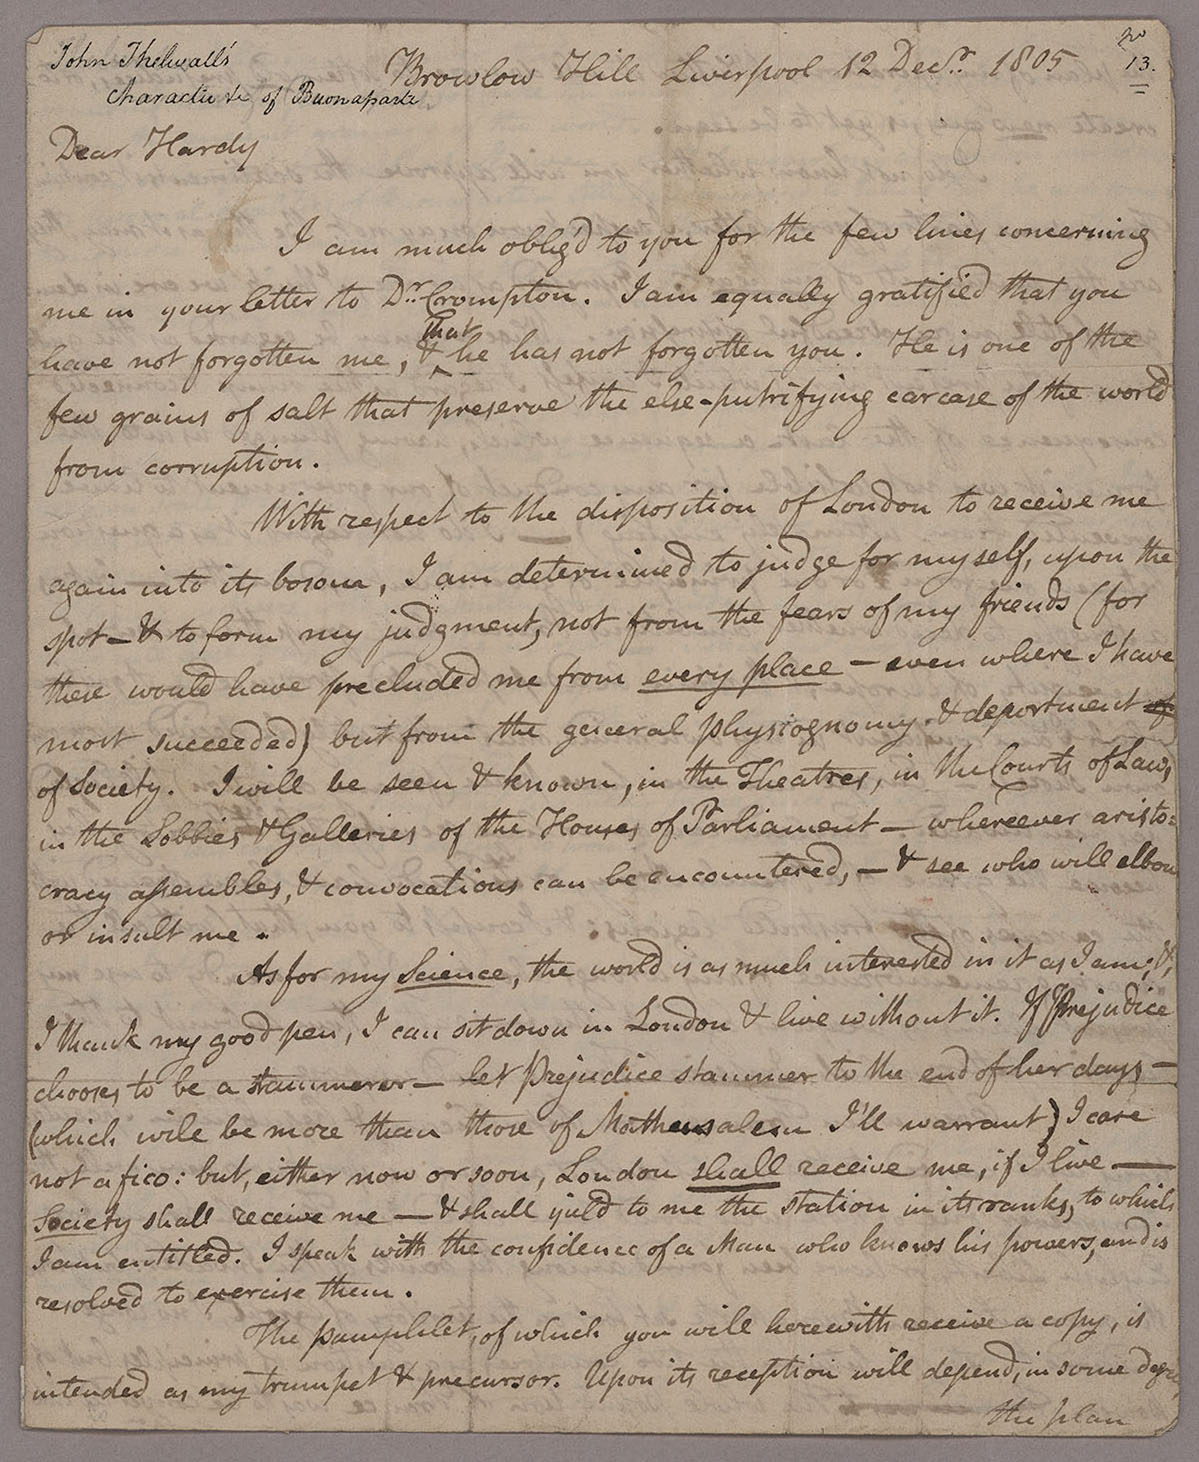 John Thelwall's
Character &c of Buonaparte
No
13.
Browlow Hill Liverpool 12 Decr. 1805
Dear Hardy
I am much oblig'd to you for the few lines concerning
me in your letter to Dr. Crompton. I am equally gratified that you
have not forgotten me, & that he has not forgotten you. He is one of the
few grains of salt that preserve the else-putrifying carcase of the world
from corruption.
With respect to the disposition of London to receive me
again into its bosom, I am determined to judge for myself, upon the
spot — & to form my judgment, not from the fears of my friends (for
these would have precluded me from every place — even where I have
most succeeded) but from the general physiognomy & deportment of
of Society. I will be seen & known, in the Theatres, in the Courts of Law,
in the Lobbies & Galleries of the Houses of Parliament — whereever aristo=
cracy assembles, & convocations can be encountered, — & see who will elbow
or insult me.
As for my Science, the world is as much interested in it as I am; &,
I thank my good pen, I can sit down in London & live without it. If Prejudice
chooses to be a stammerer — let Prejudice stammer to the end of her days —
(which will be more than those of Mathusalem I'll warrant) I care
not a fico: but, either now or soon, London shall receive me, if I live —
Society shall receive me — & shall yield to me the station in its ranks, to which
I am entitled. I speak with the confidence of a Man who knows his powers, and is
resolved to exercise them.
The pamphlet, of which you will herewith receive a copy, is
intended as my trumpet & precursor. Upon its reception will depend, in some degree
the plan